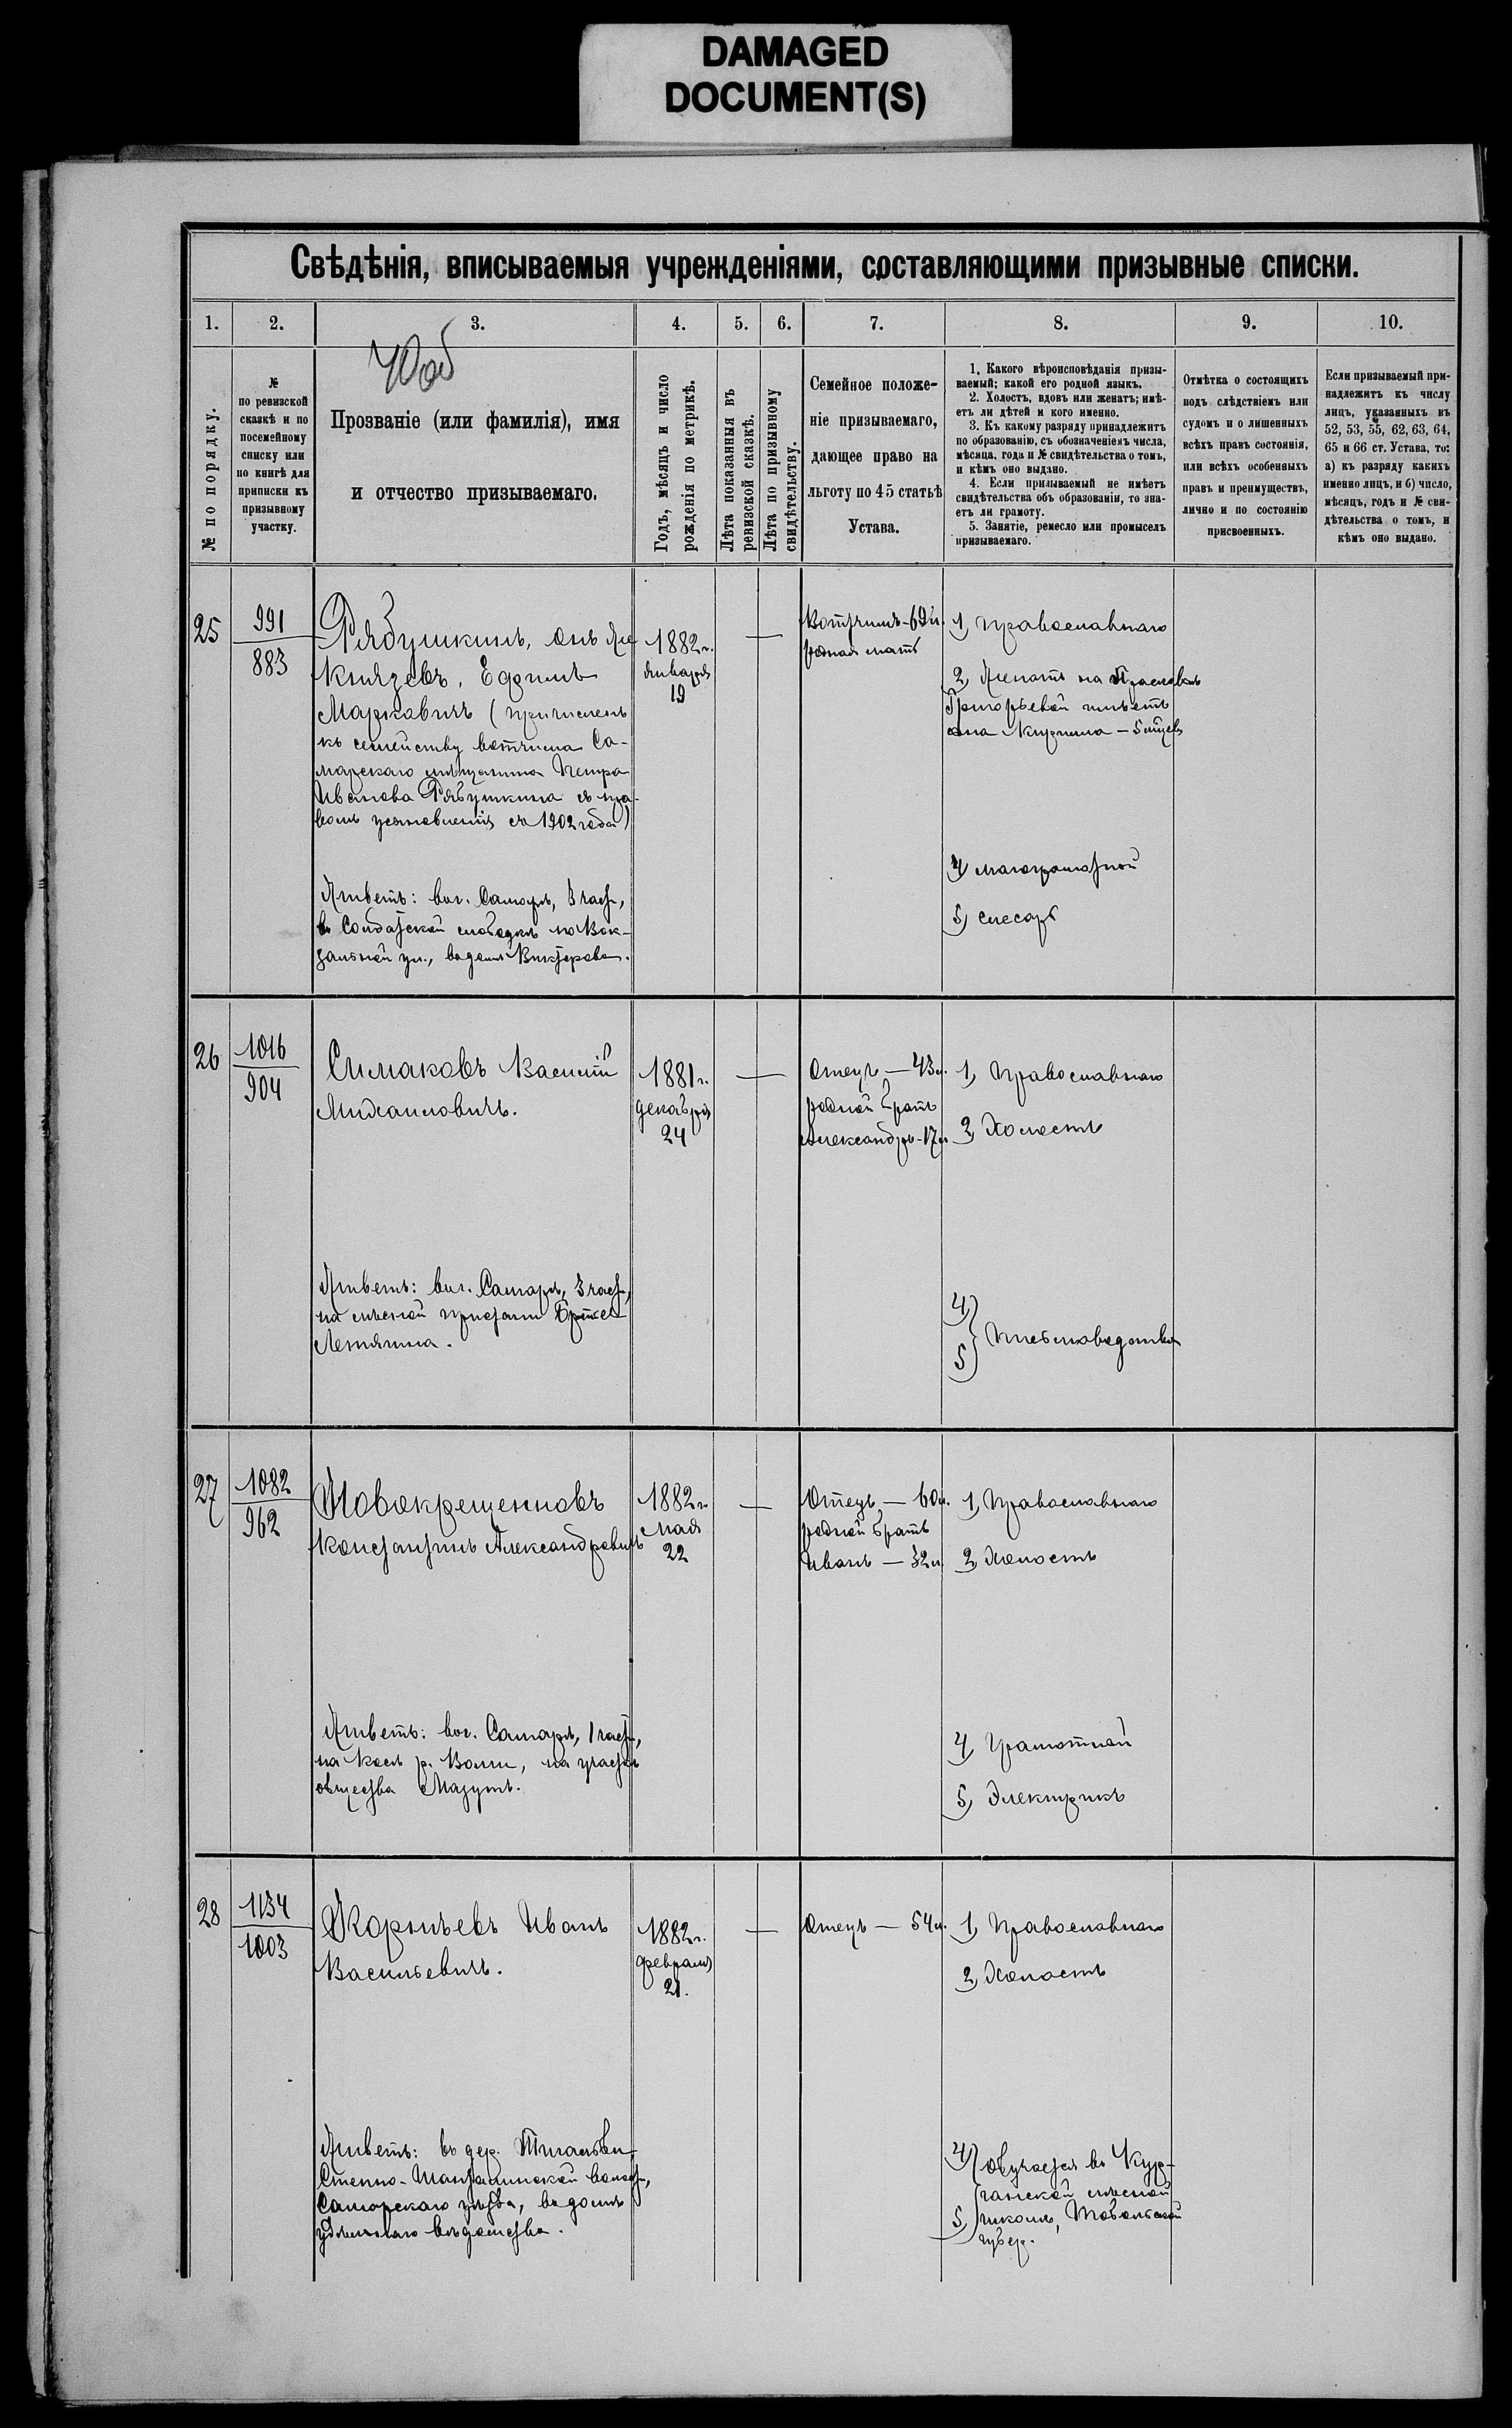 DAMAGED
DOCUMENT(S)
Свѣдѣнія, вписываемыя учрежденіями, составляющими призывные списки.
1.
2.
3.
4.
5.
6.
7.
8.
9.
10.
№ по порядку.
№
по ревизской
сказкѣ и по
посемейному
списку или
по книгѣ для
приписки къ
призывному
участку.
Прозваніе (или фамилія), имя
и отчество призываемаго.
Годъ, мѣсяцъ и число
рожденія по метрикѣ.
Лѣта показанныя въ
ревизской сказкѣ.
Лѣта по призывному
свидѣтельству.
Семейное положе-
ніе призываемаго,
дающее право на
льготу по 45 статьѣ
Устава.
1. Какого вѣроисповѣданія призы-
ваемый; какой его родной языкъ.
2. Холостъ, вдовъ или женатъ; имѣ-
етъ ли дѣтей и кого именно.
3. Къ какому разряду принадлежитъ
по образованію, съ обозначеніемъ числа,
мѣсяца, года и № свидѣтельства о томъ,
и кѣмъ оно выдано.
4. Если призываемый не имѣетъ
свидѣтельства объ образованіи, то зна-
етъ ли грамоту.
5. Занятіе, ремесло или промыселъ
призываемаго.
Отмѣтка о состоящихъ
подъ слѣдствіемъ или
судомъ и о лишенныхъ
всѣхъ правъ состоянія,
или всѣхъ особенныхъ
правъ и преимуществъ,
лично и по состоянію
присвоенныхъ.
Если призываемый при-
надлежитъ къ числу
лицъ, указанныхъ въ
52, 53, 55, 62, 63, 64,
65 и 66 ст. Устава, то:
а) къ разряду какихъ
именно лицъ, и б) число,
мѣсяцъ, годъ и № сви-
дѣтельства о томъ, и
кѣмъ оно выдано.
25
991
883
Рябушкинъ, онъ же
Князевъ, Ефимъ
Марковичъ (причисленъ
къ семейству вотчима Са-
марскаго мѣщанина Петра
Иванова Рябушкина съ пра-
вомъ усыновленія съ 1902 года)
Живетъ: въ г. Самарѣ, 3 части,
въ Солдатской слободкѣ по Вок-
зальной ул., въ домѣ Викторова.
1882 г.
января
19
—
Вотчимъ - 69 л.
родная мать
1) Православнаго
2) Женатъ на Прасковьѣ
Григорьевой имѣетъ
сына Кирилла - 5 мѣсяцевъ
4) малограмотной
5) слесарь
26
1016
904
Симаковъ Василій
Михаиловичъ.
Живетъ: въ г. Самарѣ, 3 части,
на лѣсной пристани
1881 г.
декабря
24
—
Отецъ — 43 л.
родной братъ
Александръ - 17 л.
1) Православнаго
2) Холостъ
4)
5)
27
1082
962
Новокрещенновъ
Константинъ Александровичъ
Живетъ: въ г. Самарѣ, 1 части,
на косѣ р. Волги, на участкѣ
общества Мазутъ.
1882 г.
мая
22
—
Отецъ — 60 л.
родной братъ
Иванъ — 32 л.
1) Православнаго
2) Холостъ
4) Грамотной
5) Электрикъ
28
1134
1003
Корнѣевъ Иванъ
Васильевичъ.
Живетъ: въ дер.
Степно-Шанталинской волости,
Самарскаго уѣзда, въ домѣ
удѣльнаго вѣдомства.
1882 г.
февраля
21.
—
Отецъ — 54 л.
1) Православнаго
2) Холостъ
4) обучается въ Кур-
ганской лѣсной
5) школѣ, Тобольской
губер.